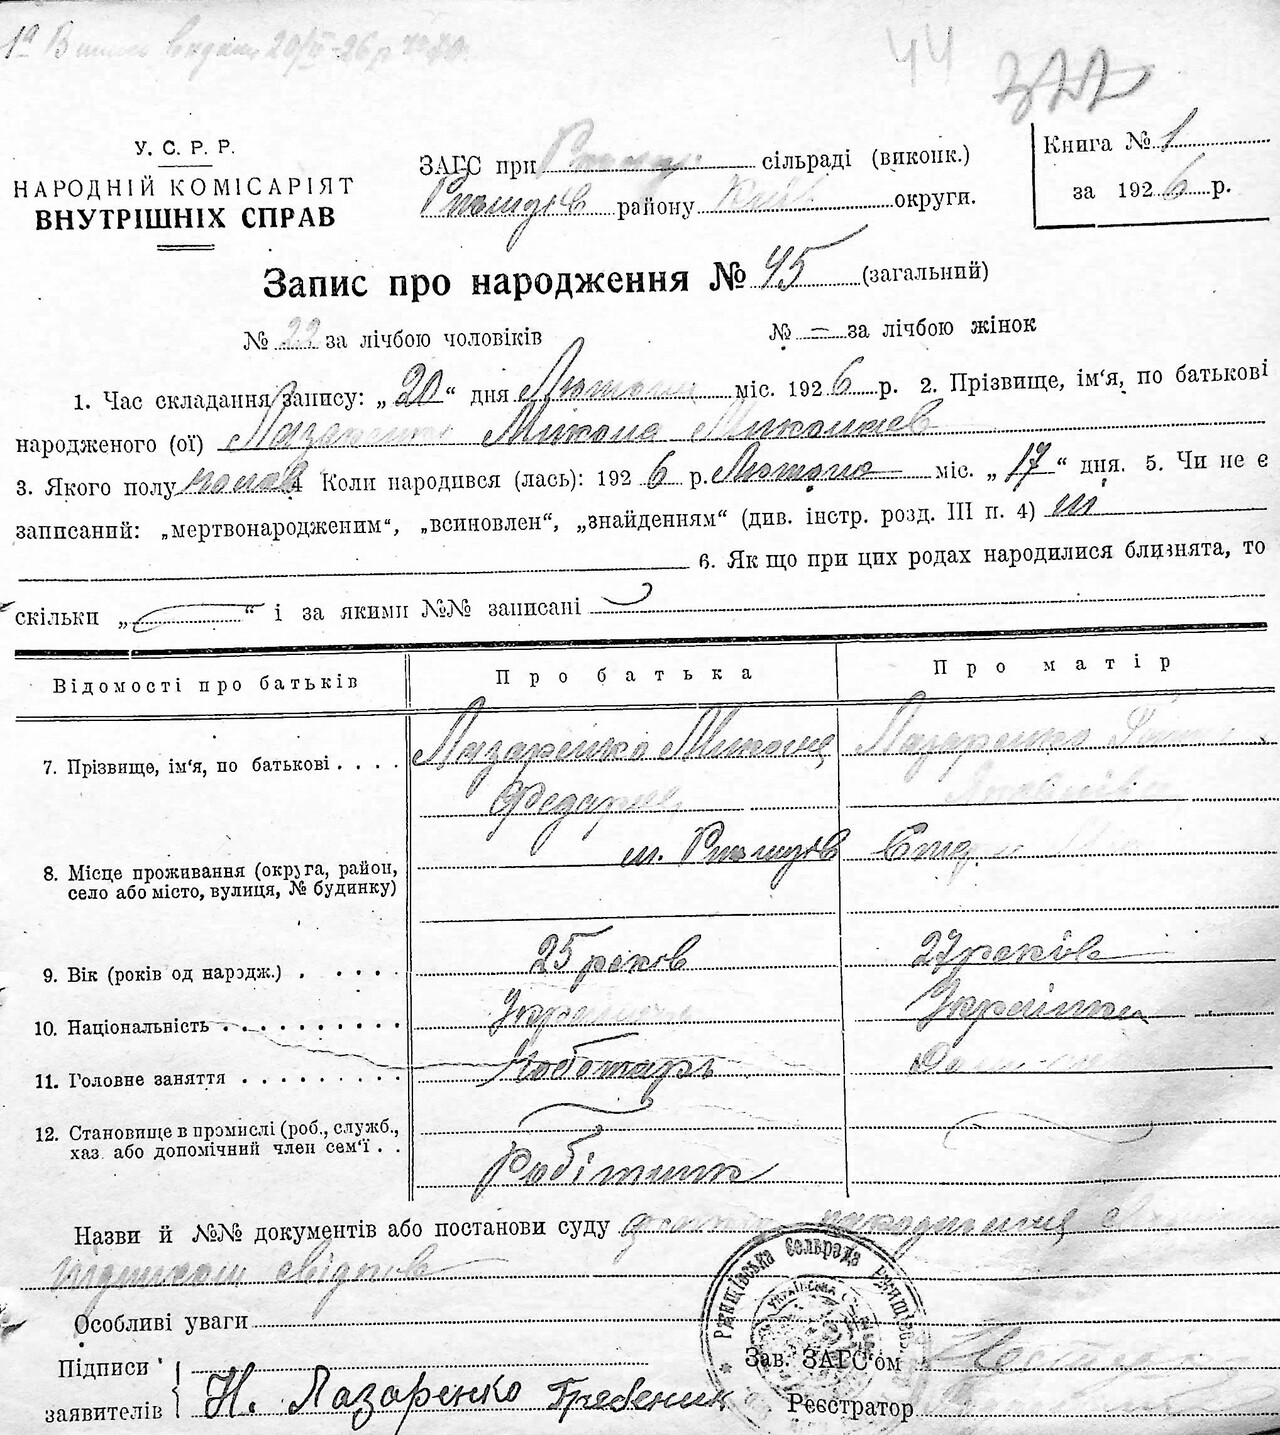 20/II-26 р
44
У. С. Р. Р.
НАРОДНІЙ КОМІСАРІЯТ
ВНУТРІШНІХ СПРАВ
ЗАГС при сільраді (виконк.)
Ржищів району Київ округи.
Книга № 1
за 1926 р.
Запис про народження № 45 (загальний)
№ 22 за лічбою чоловіків № = за лічбою жінок
1. Час складання запису: „20“ дня Лютого міс. 1926 р. 2. Прізвище, ім'я, по батькові
народженого (ої) Лазаренко Микола Миколаєв
3. Якого полу чолов 4 Коли народився (лась): 1926 р. Лютого міс. „17“ дня. 5. Чи не є
записаний: „мертвонародженим“, „всиновлен“, „знайденням“ (див. інстр. розд. III п. 4) ні
6. Як що при цих родах народилися близнята, то
скільки „ “ і за якими №№ записані
Відомості про батьків Про батька Про матір
7. Прізвище, ім'я, по батькові . . . . Лазаренко Микола Лазаренко
Федоров
8. Місце проживання (округа, район, село або місто, вулиця, № будинку) м. Ржищів
9. Вік (років од народж.) . . . . . 25 років 27 років
10. Національність . . . . . . . . . Українець Українка
11. Головне заняття . . . . . . . . . Чоботарь
12. Становище в промислі (роб., служб.,
хаз. або допомічний член сем'ї . . Робітник
Назви й №№ документів або постанови суду народження
підписали свідков
Особливі уваги
Підписи
заявителів Н. Лазаренко Гребеник
Ржищівська Сельрада
Зав. ЗАГС'ом
Реєстратор